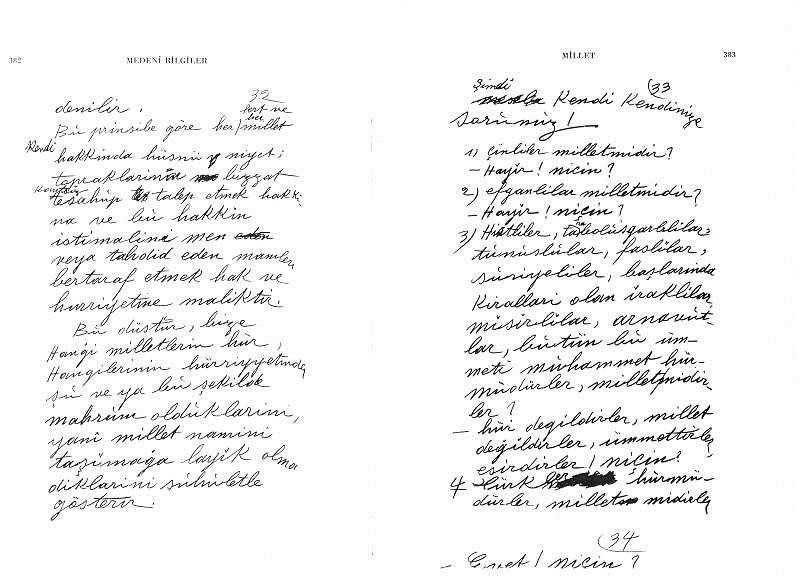 382
MEDENİ BİLGİLER
32
denilir.
fert ve
Bu prinsibe göre her
her millet
Kendi
hakkinda hüsnü niyet;
topraklarinin bizzat
tesahüp talep etmek hakki-
na ve bu hakkin
istimalini men eden
veya tahdid eden manileri
bertaraf etmek hak ve
hurriyetine maliktir.
Bu düstur, bize
Hangi milletlerin hür,
Hangilerinin hürriyyetinden
şu ve ya bu şekilde
mahrum olduklarini,
yani millet namini
taşimağa layik olma
diklarini suhuletle
gösterir.
MİLLET
383
33
Şimdi
Kendi Kendimize
Soruniz!
1) Çinliler milletmidir?
- Hayir! niçin?
2) efganlilar milletmidir?
- Hayir! niçin?
3) Hintliler,
tunuslular, faslilar,
suriyeliler, başlarinda
Kirallari olan irakliar,
misirlilar, arnavut-
lar, bütün bu üm-
meti muhammet hür-
müdürler, milletmidir-
ler?
- hür degildirler, millet
değildirler, ümmettirler
esirdirler! niçin?
4 Türk hürmü-
dürler, millet midirler
34
- Evet! niçin?